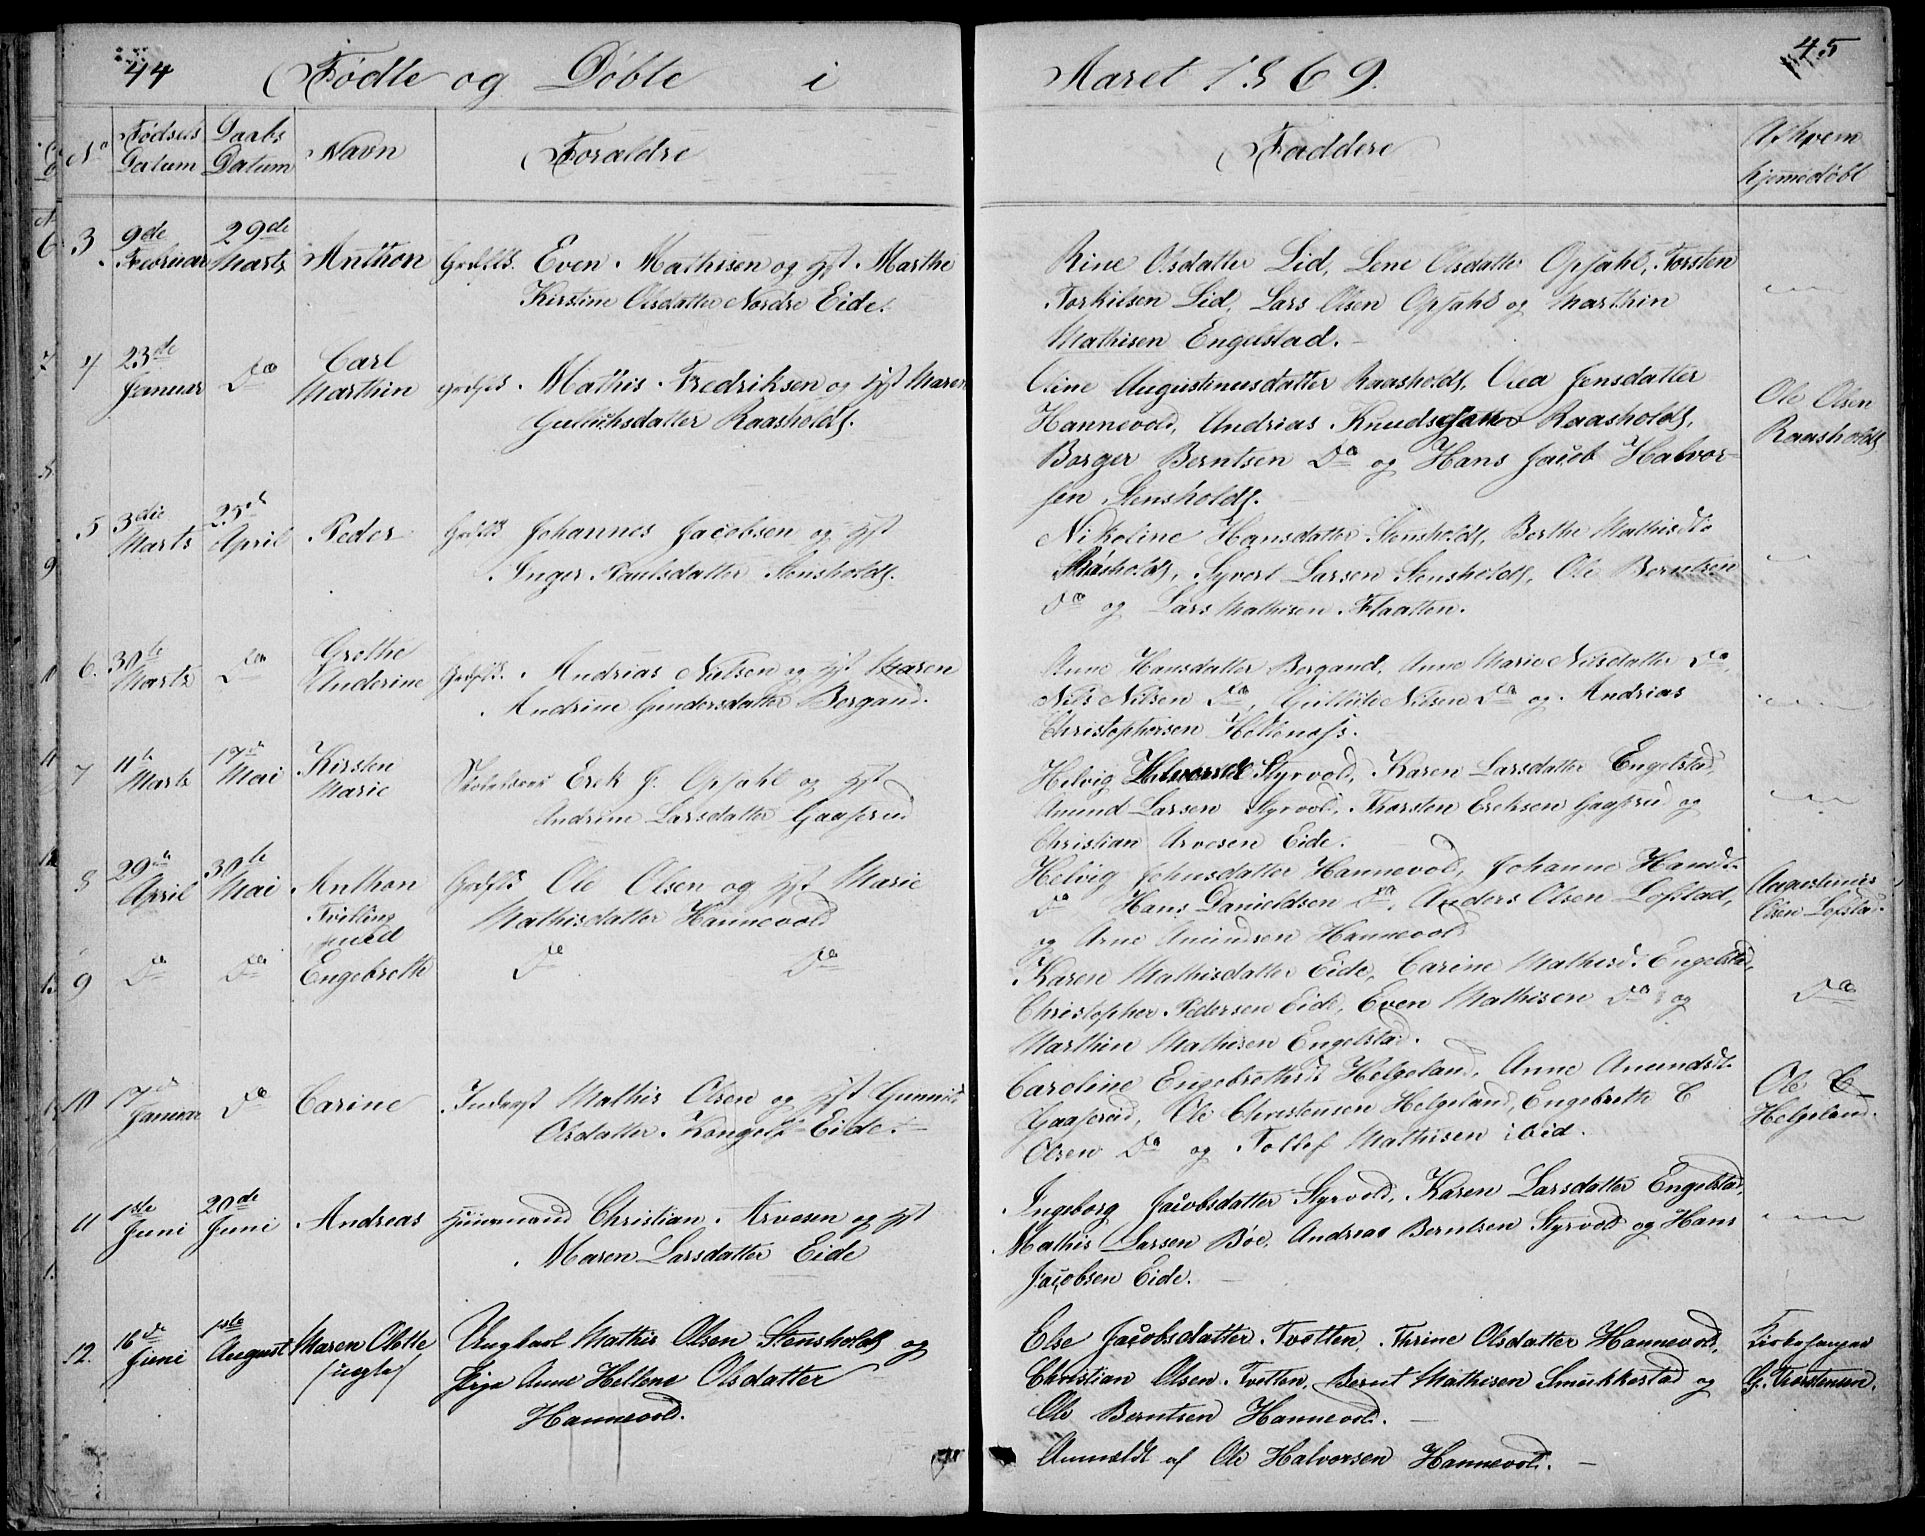 44 Fødte og Døbte i Aaret 1869. 45
No Fødsels Datum Daabs Datum Navn Forældre Faddere Af hvem hjemmedøbt
3 9de Februar 29de Marts Anthon Gaardsld. Even Mathisen og Hst Marthe
Kirstine Olsdatter Nordre Eide.
Rine Olsdatter Lid, Lene Olsdatter Opsahl, Torsten
Torkilsen Lid, Lars Olsen Opsahl og Marthin
Mathisen Engelstad.
4 23de Januar Do Carl Marthin Gaardsld. Mathis Fredriksen og Hst Maren
Gulluhsdatter Raasholdt.
Oline Augustinusdatter Raasholdt, Olea Jensdatter
Hannevold, Andrias Knuds Raasholdt,
Borger Berntsen Do og Hans Jacob Halvor-
sen Stensholdt.
Ole Olsen
Raasholdt
5 3die Marts 25de April Peder Gaardsld. Johannes Jacobsen og Hst
Inger Paulsdatter Stensholdt.
Nikoline Hansdatter Stensholdt, Berthe Mathisdt.
Raasholdt, Syvert Larsen Stensholdt, Ole Berntsen
Do og Lars Mathisen Flaatten.
6. 30te Marts Do Grethe Anderine Gaardsld. Andrias Nilsen og Hst Karen
Andrine Gundersdatter Bergand.
Anne Hansdatter Bergand, Anne Marie Nilsdatter Do,
Nils Nilsen Do, Gulluk Nilsen Do og Andrias
Christophersen Hellenæss.
7 11te Marts 17de Mai Kirsten Marie Skolelærer Erek J. Opsahl og Hst
Andrine Larsdatter Gaaserud
Helvig Halvorsdt Styrvold, Karen Larsdatter Engelstad,
Amund Larsen Styrvold, Thorsten Ereksen Gaaserud og
Christian Arvesen Eide.
8 29de April 30te Mai Anthon Gaardsld. Ole Olsen og Hst Marie
Tvilling med
Mathisdatter Hannevold
Helvig Johnsdatter Hannevold, Johanne Hansdt.
Do Hans Danieldsen Do, Anders Olsen Lofstad,
og Arne Amundsen Hannevold
Augustinus
Olsen Lofstad.
9 Do Do Engebreth Do Do
Karen Mathisdatter Eide, Carine Mathisd. Engelstad,
Christopher Pedersen Eide, Even Mathisen Do og
Marthin Mathisen Engelstad.
Do
10 17de Januar Do Carine Inderst Mathis Olsen og Hst Gunnild
Olsdatter Kongelf Eide.
Caroline Engebrethsdt Helgeland, Anne Amundsdt.
Gaaserud, Ole Christensen Helgeland, Engebreth C
Olsen Do og Tollef Mathisen ibid.
Ole C
Helgeland.
11 1ste Juni 20de Juni Andreas Huusmand Christian Arvesen og Hst
Maren Larsdatter Eide
Ingeborg Jacobsdatter Styrvold, Karen Larsdatter Engelstad,
Mathis Larsen Bøe, Andreas Berntsen Styrvold og Hans
Jacobsen Eide.
12. 16de Juni 1ste August Maren Oløtte (uægte) Ungkarl Mathis Olsen Stensholdt og
Pige Anne Hellene Olsdatter
Hannevold.
Else Jacobsdatter Tvetten, Thrine Olsdatter Hannevold,
Christian Olsen Tvetten, Bernt Mathisen Smukkestad og
Ole Berntsen Hannevold.
Anmeldt af Ole Halvorsen Hannevold.
Kirkesanger
G. Thorstensen.